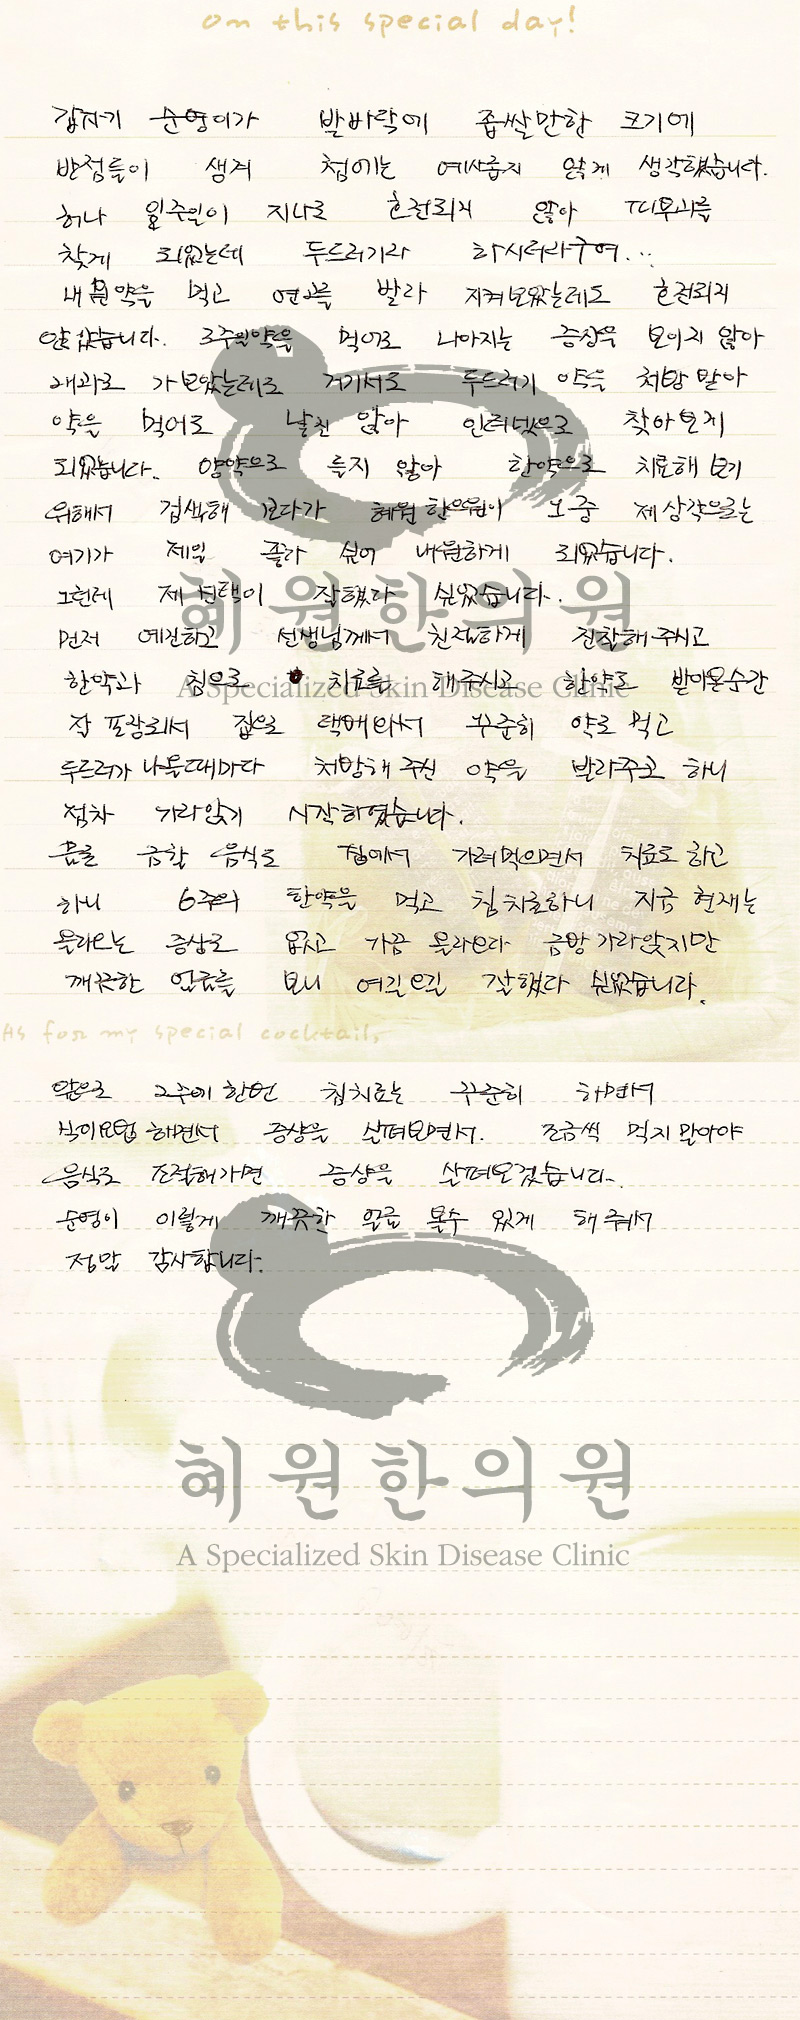 on this special day!
갑자기 순영이가 발바닥에 좁쌀만한 크기에
반점들이 생겨 첨에는 예사롭지 않게 생각했습니다.
허나 일주일이 지나도 호전되지 않아 피부과를
찾게 되었는데 두드러기라 하시더라구여...
내복약을 먹고 연고를 발라 지켜보았는데도 호전되지
않았습니다. 3주일약을 먹어도 나아지는 증상을 보이지 않아
내과로 가보았는데도 거기서도 두드러기 약을 처방 받아
약을 먹어도 낳질 않아 인터넷으로 찾아보게
되었습니다. 양약으로 듣지 않아 한약으로 치료해 보기
위해서 검색해 보다가 혜원한의원이 그중 제 생각으로는
여기가 제일 좋다 싶어 내원하게 되었습니다.
그런데 제 선택이 잘했다 싶었습니다.
먼저 예진하고 선생님께서 친절하게 진찰해 주시고
한약과 침으로 치료를 해주시고 한약도 받아본순간
잘 포장되서 집으로 택배와서 꾸준히 약도 먹고
두드러가 나올때마다 처방해 주신 약을 발라주고 하니
점차 가라앉기 시작하였습니다.
금할 음식도 집에서 가려먹으면서 치료도 하고
하니 6주의 한약을 먹고 침치료하니 지금 현재는
올라오는 증상도 없고 가끔 올라오다 금방 가라앉지만
깨끗한 얼굴를 보니 여길오길 잘했다 싶었습니다.
As for my special cocktail,
앞으로 2주에 한번 침치료는 꾸준히 하면서
식이요법 하면서 증상을 살펴보면서. 조금씩 먹지 말아야
음식도 조절해가면 증상을 살펴보겠습니다.
순영이 이렇게 깨끗한 얼굴 볼수 있게 해 줘서
정말 감사합니다.
혜원한의원
A Specialized Skin Disease Clinic
혜원한의원
A Specialized Skin Disease Clinic